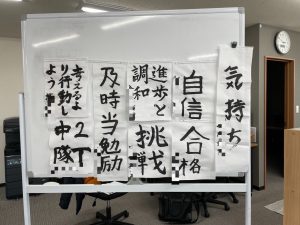 気持ち
自信
合格
進歩と
調和
挑戦
及時当勉励
考えるよ
り行動し
よう
2T
中隊